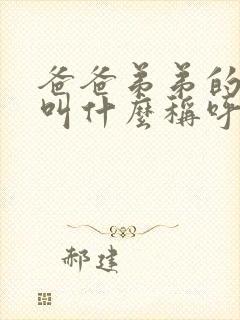 爸爸弟弟的
叫什麼稱呼
郝建